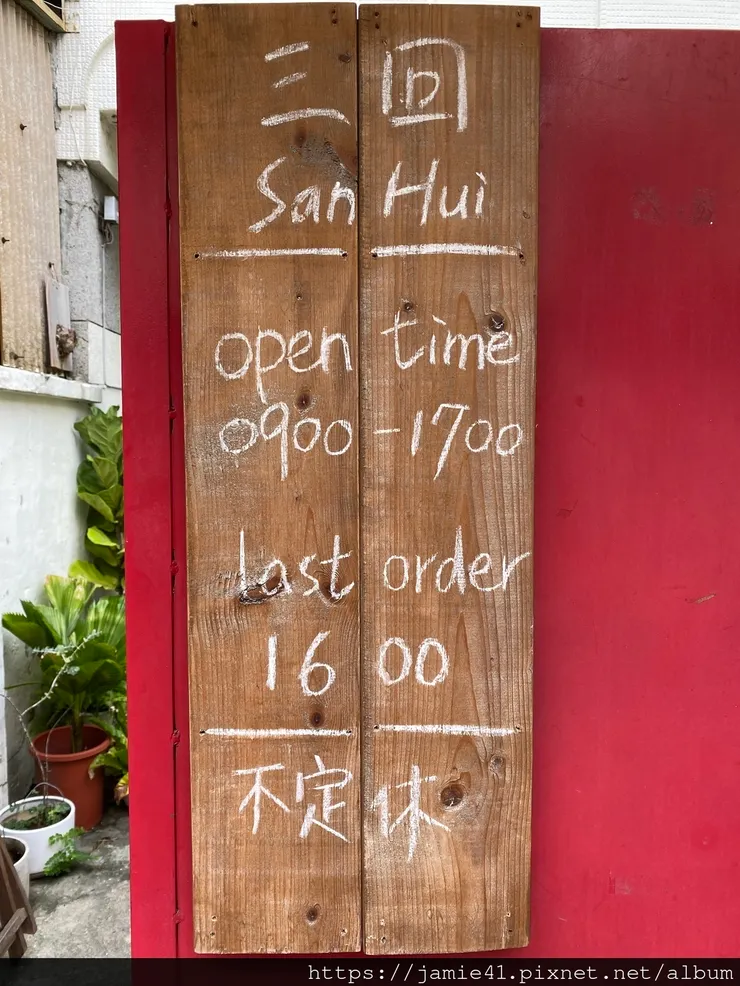 三回
San Hui
open time
0900-1700
last order
16 00
不定休
https://jamie41.pixnet.net/album